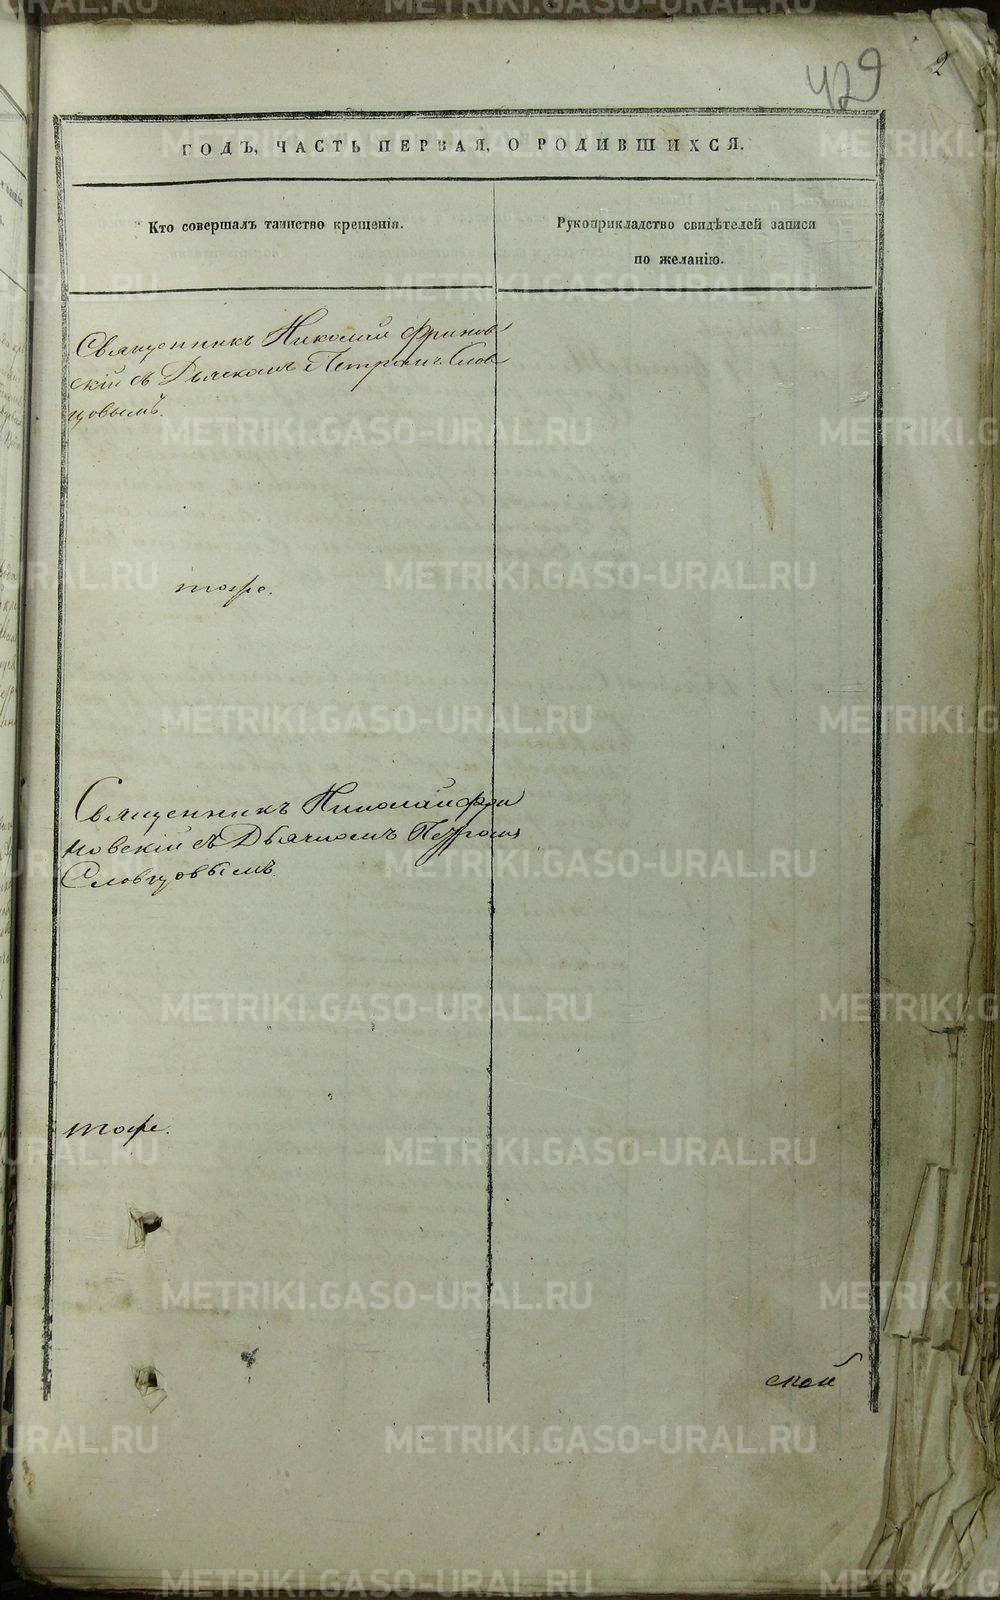 429
2
ГОДЪ, ЧАСТЬ ПЕРВАЯ, О РОДИВШИХСЯ.
Кто совершалъ таинство крещенія.
Рукоприкладство свидѣтелей записи
по желанію.
Священникъ Николай Фринов
скій съ Дьячкомъ Петромъ Слов
цовымъ.
тоже.
Священникъ Николай Фри
новскій съ Дьячкомъ Петромъ
Словцовымъ.
тоже.
ской
METRIKI.GASO-URAL.RU